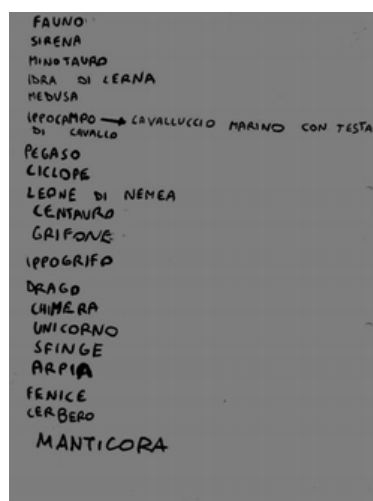 FAUNO
SIRENA
MINOTAURO
IDRA DI LERNA
MEDUSA
IPPOCAMPO → CAVALLUCCIO MARINO CON TESTA
DI CAVALLO
PEGASO
CICLOPE
LEONE DI NEMEA
CENTAURO
GRIFONE
IPPOGRIFO
DRAGO
CHIMERA
UNICORNO
SFINGE
ARPIA
FENICE
CERBERO
MANTICORA